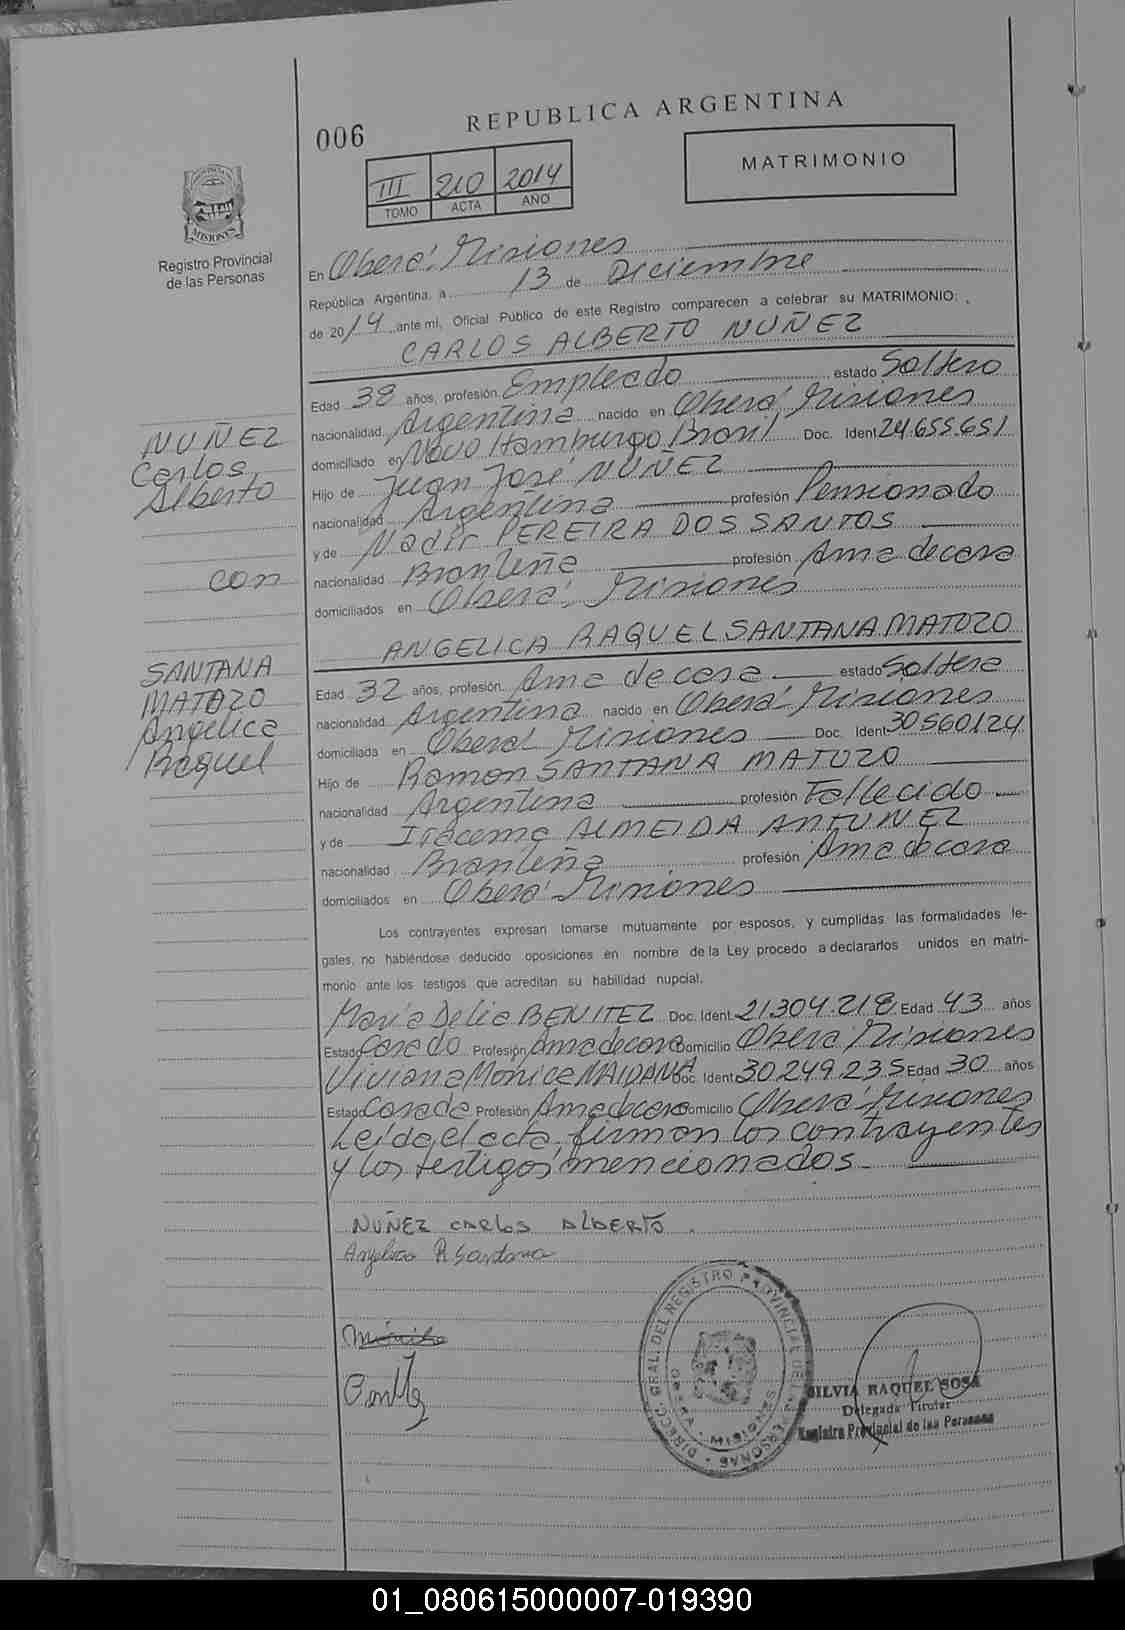 REPUBLICA ARGENTINA
006
MATRIMONIO
III 210 2014
TOMO ACTA AÑO
MISIONES
Registro Provincial
de las Personas
En Oberá, Misiones
República Argentina, a 13 de Diciembre
de 2014 ante mí, Oficial Público de este Registro comparecen a celebrar su MATRIMONIO:
CARLOS ALBERTO NUÑEZ
Edad 38 años, profesión Empleado estado Soltero
nacionalidad Argentina nacido en Oberá, Misiones
domiciliado en Novo Hamburgo Brasil Doc. Ident 24.655.651
Hijo de Juan José NUÑEZ
nacionalidad Argentina profesión Pensionado
y de Nadir PEREIRA DOS SANTOS
nacionalidad Brasileña profesión Ama de casa
domiciliados en Oberá, Misiones
NUÑEZ
Carlos
Alberto
con
SANTANA
MATOZO
Angelica
Raquel
ANGELICA RAQUEL SANTANA MATOZO
Edad 32 años, profesión Ama de casa estado Soltera
nacionalidad Argentina nacido en Oberá Misiones
domiciliada en Oberá Misiones Doc. Ident 30560124
Hijo de Ramon SANTANA MATOZO
nacionalidad Argentina profesión Fallecido
y de Iracema ALMEIDA ANTUNEZ
nacionalidad Brasileña profesión Ama de casa
domiciliados en Oberá Misiones
Los contrayentes expresan tomarse mutuamente por esposos, y cumplidas las formalidades le-
gales, no habiéndose deducido oposiciones en nombre de la Ley procedo a declararlos unidos en matri-
monio ante los testigos que acreditan su habilidad nupcial.
Maria Delia BENITEZ Doc. Ident. 21.304.218 Edad 43 años
Estado Casado Profesión Ama de casa Domicilio Oberá Misiones
Viviana Mónica MAIDANA Doc. Ident 30.249.235 Edad 30 años
Estado Casada Profesión Ama de casa Domicilio Oberá Misiones
Leída el acta, firman los contrayentes
y los testigos mencionados
NUÑEZ CARLOS ALBERTO.
Angelica R Santana
DIREC. GRAL. DEL REGISTRO PROVINCIAL DE LAS PERSONAS
OBERA - MISIONES
SILVIA RAQUEL SOSA
Delegada Titular
Registro Provincial de las Personas
01_080615000007-019390